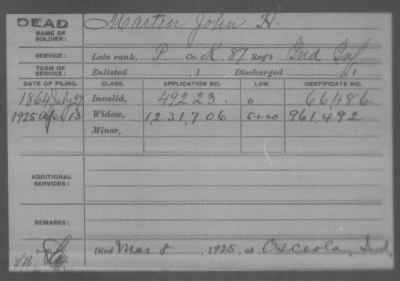 DEAD
NAME OF SOLDIER: Martin John H.
SERVICE: Late rank, P. Co. K, 87 Reg't Ind Inf
TERM OF SERVICE: Enlisted , 1 Discharged , 1
DATE OF FILING. CLASS. APPLICATION NO. LAW. CERTIFICATE NO.
1864 July 27 Invalid, 49223. 0 66,486
1925 Apr 13 Widow, 1,231,706 961,492
Minor,
ADDITIONAL SERVICES:
REMARKS:
Died Mar 8, 1925, at Osceola, Ind.